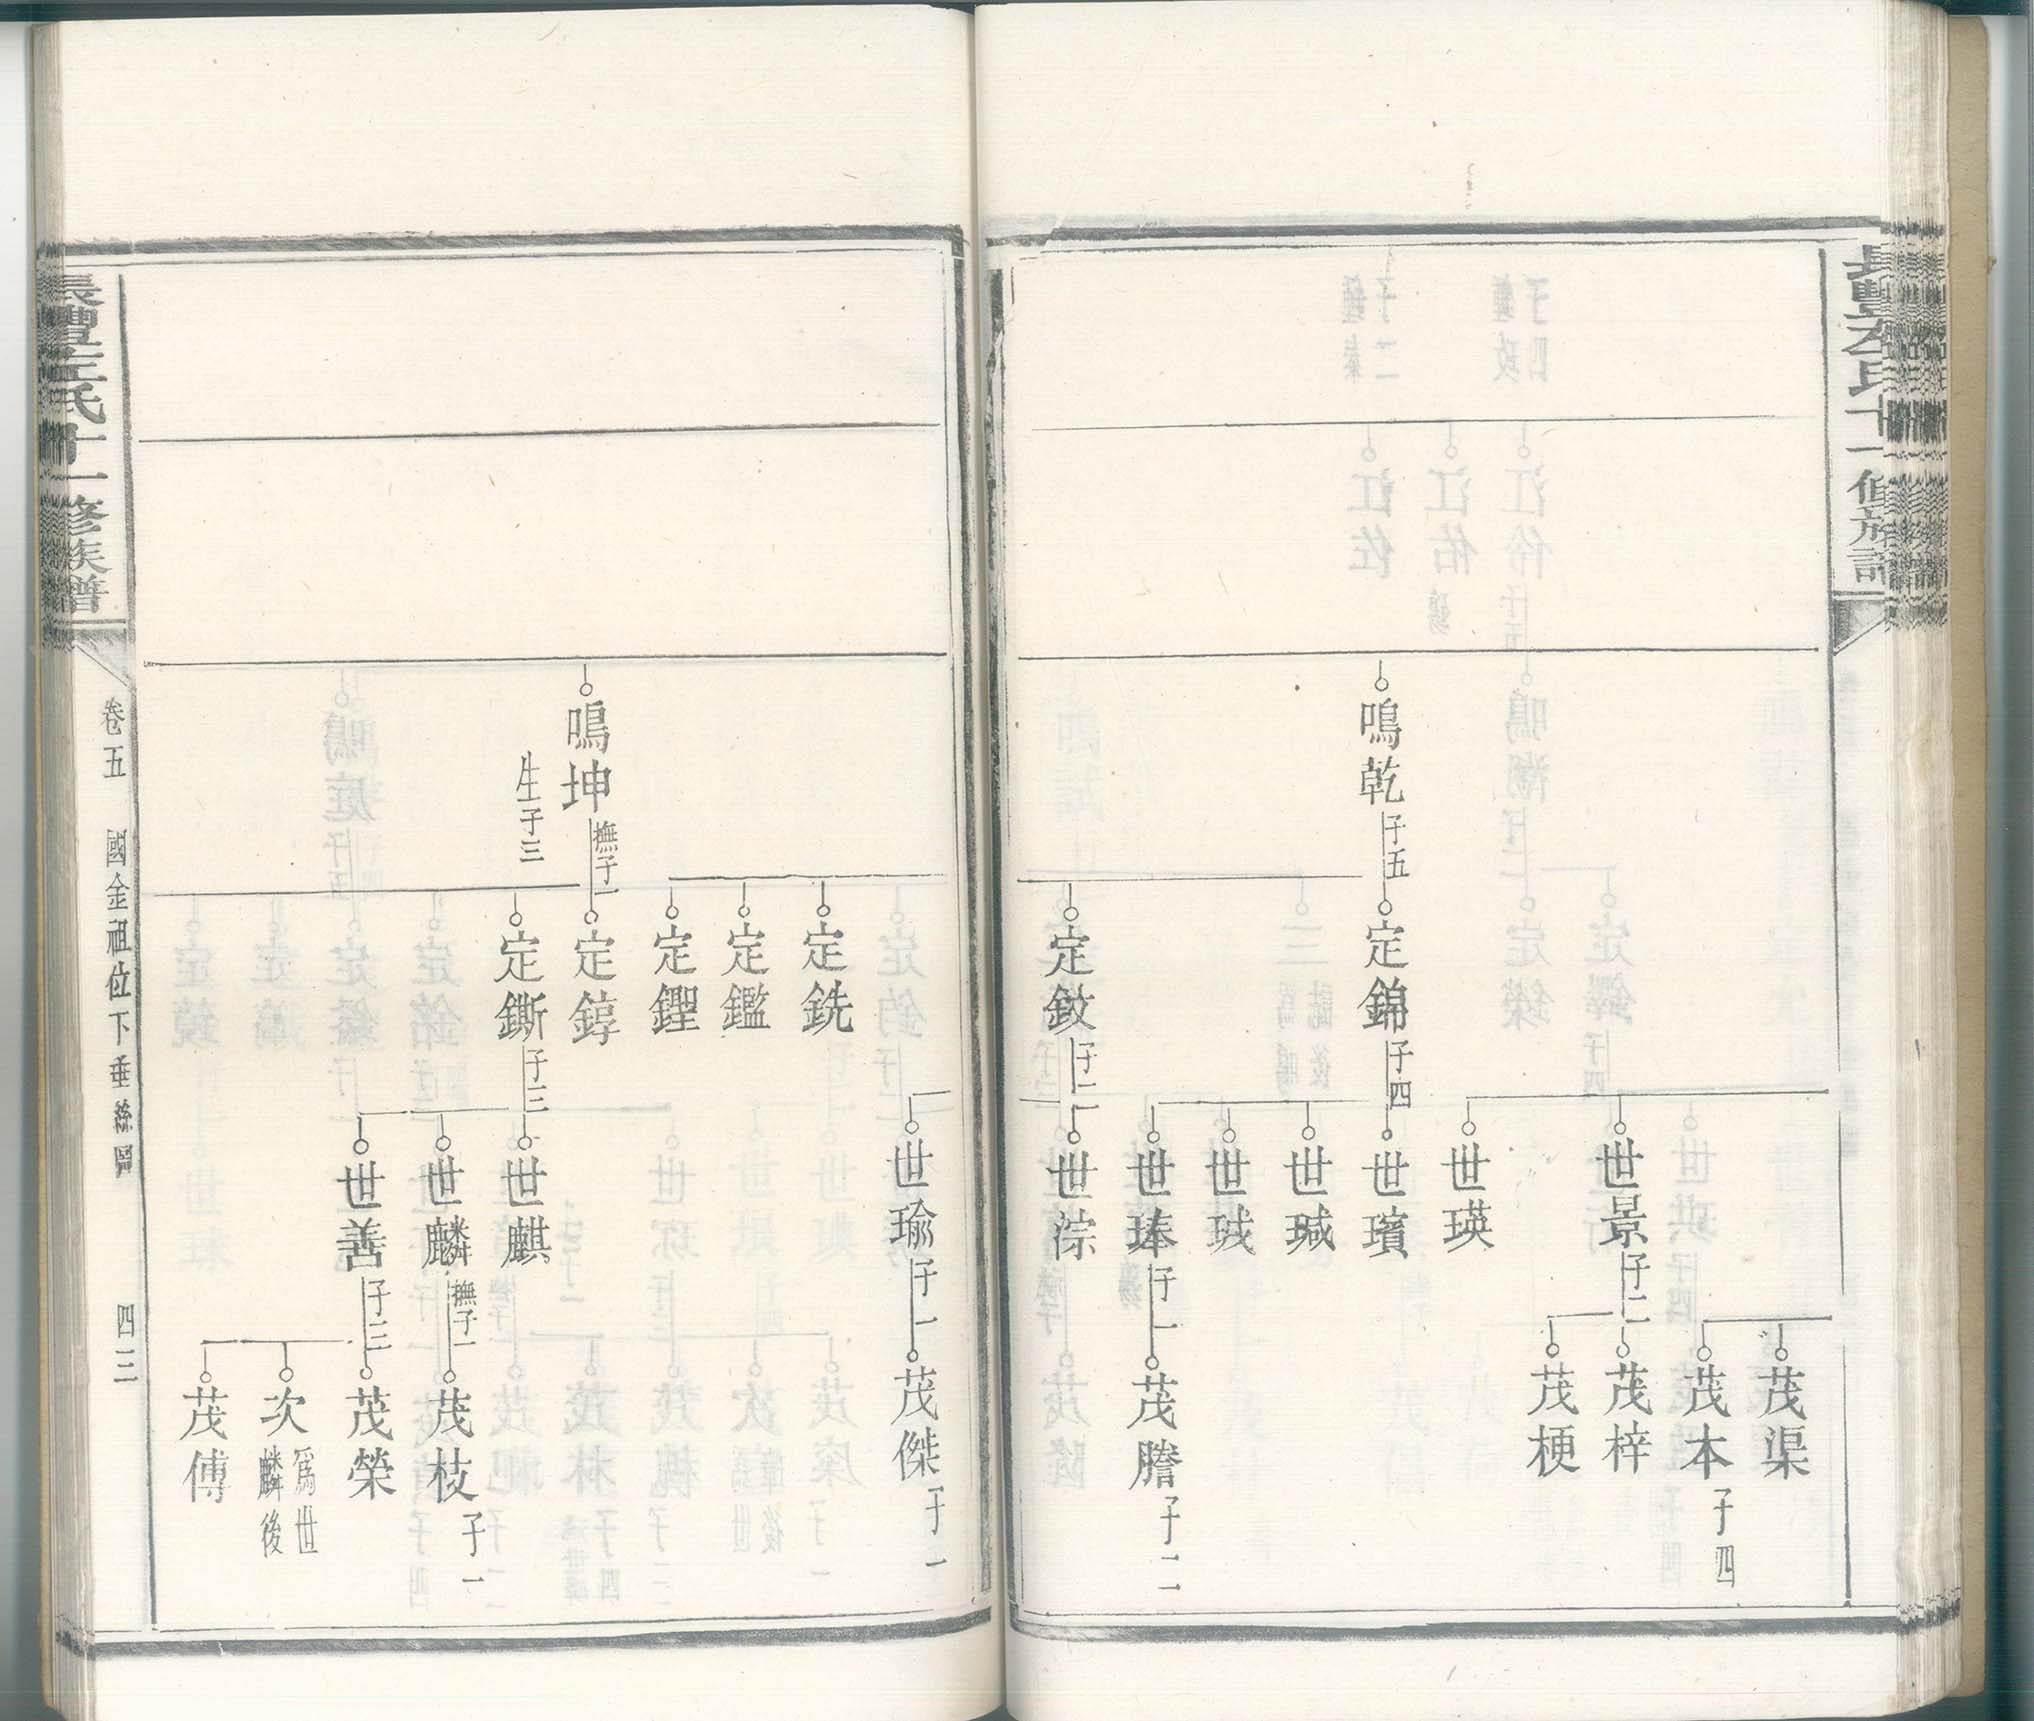 長豐左氏十一修族譜
鳴乾 子五
定錦 子四
定鈫 子二
世景 子二
世瑛
世璸
世瑊
世珹
世琫 子一
世淙
茂渠
茂本 子四
茂梓
茂梗
茂謄 子二
鳴坤 撫子一
生子三
定銑
定鑑
定鋰
定錞
定鐁 子三
世瑜 子一
世麒
世麟 撫子一
世善 子三
茂傑 子一
茂枝 子一
茂榮
次 爲世麟後
茂傅
長豐左氏十一修族譜
卷五
國金祖位下垂絲圖
四三